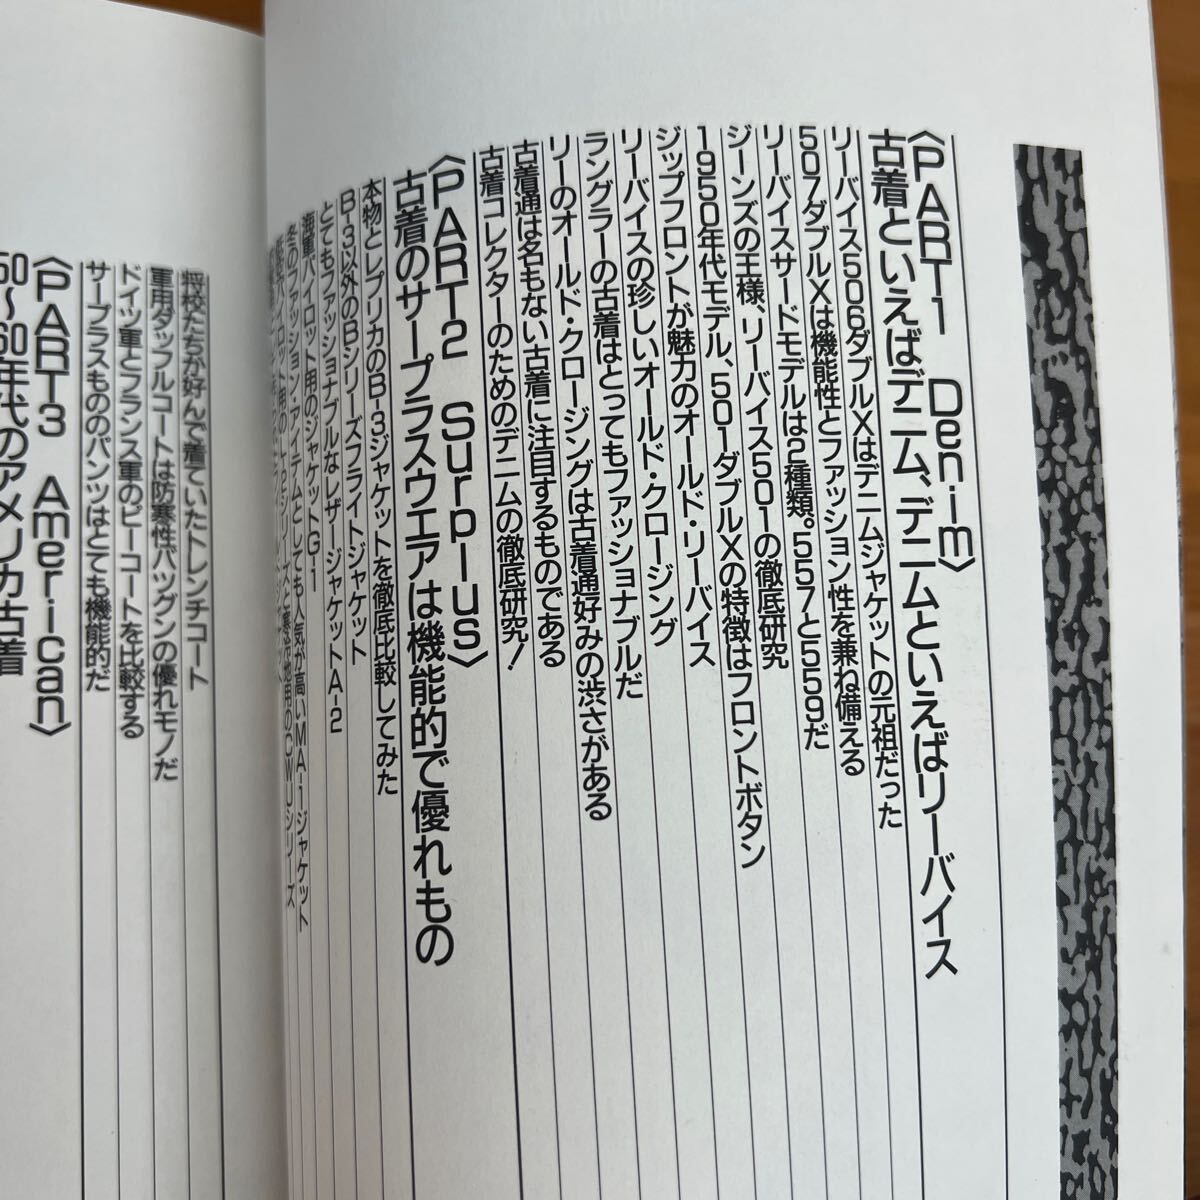 〈PART1 Denim〉
古着といえばデニム、デニムといえばリーバイス
リーバイス506ダブルXはデニムジャケットの元祖だった
507ダブルXは機能性とファッション性を兼ね備える
リーバイスサードモデルは2種類。557と559だ
ジーンズの王様、リーバイス501の徹底研究
1950年代モデル、501ダブルXの特徴はフロントボタン
ジップフロントが魅力のオールド・リーバイス
リーバイスの珍しいオールド・クロージング
ラングラーの古着はとってもファッショナブルだ
リーのオールド・クロージングは古着通好みの渋さがある
古着通は名もない古着に注目するものである
古着コレクターのためのデニムの徹底研究!
〈PART2 Surplus〉
古着のサープラスウエアは機能的で優れもの
本物とレプリカのB-3ジャケットを徹底比較してみた
B-3以外のBシリーズフライトジャケット
とてもファッショナブルなレザージャケットA-2
海軍パイロット用のジャケットG-1
冬のファッション・アイテムとしても人気が高いMA-1ジャケット
将校たちが好んで着ていたトレンチコート
軍用ダッフルコートは防寒性バツグンの優れモノだ
ドイツ軍とフランス軍のピーコートを比較する
サープラスもののパンツはとても機能的だ
〈PART3 American〉
50〜60年代のアメリカ古着